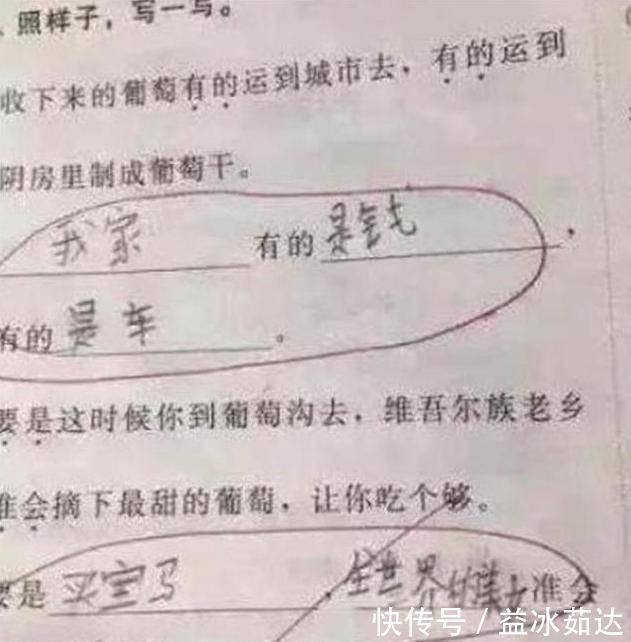 照样子，写一写。
收下来的葡萄有的运到城市去，有的运到
阴房里制成葡萄干。
我家 有的是钱，
有的是车。
要是这时候你到葡萄沟去，维吾尔族老乡
准会摘下最甜的葡萄，让你吃个够。
要是买宝马，全世界的美女准会
快传号 / 益冰茹达